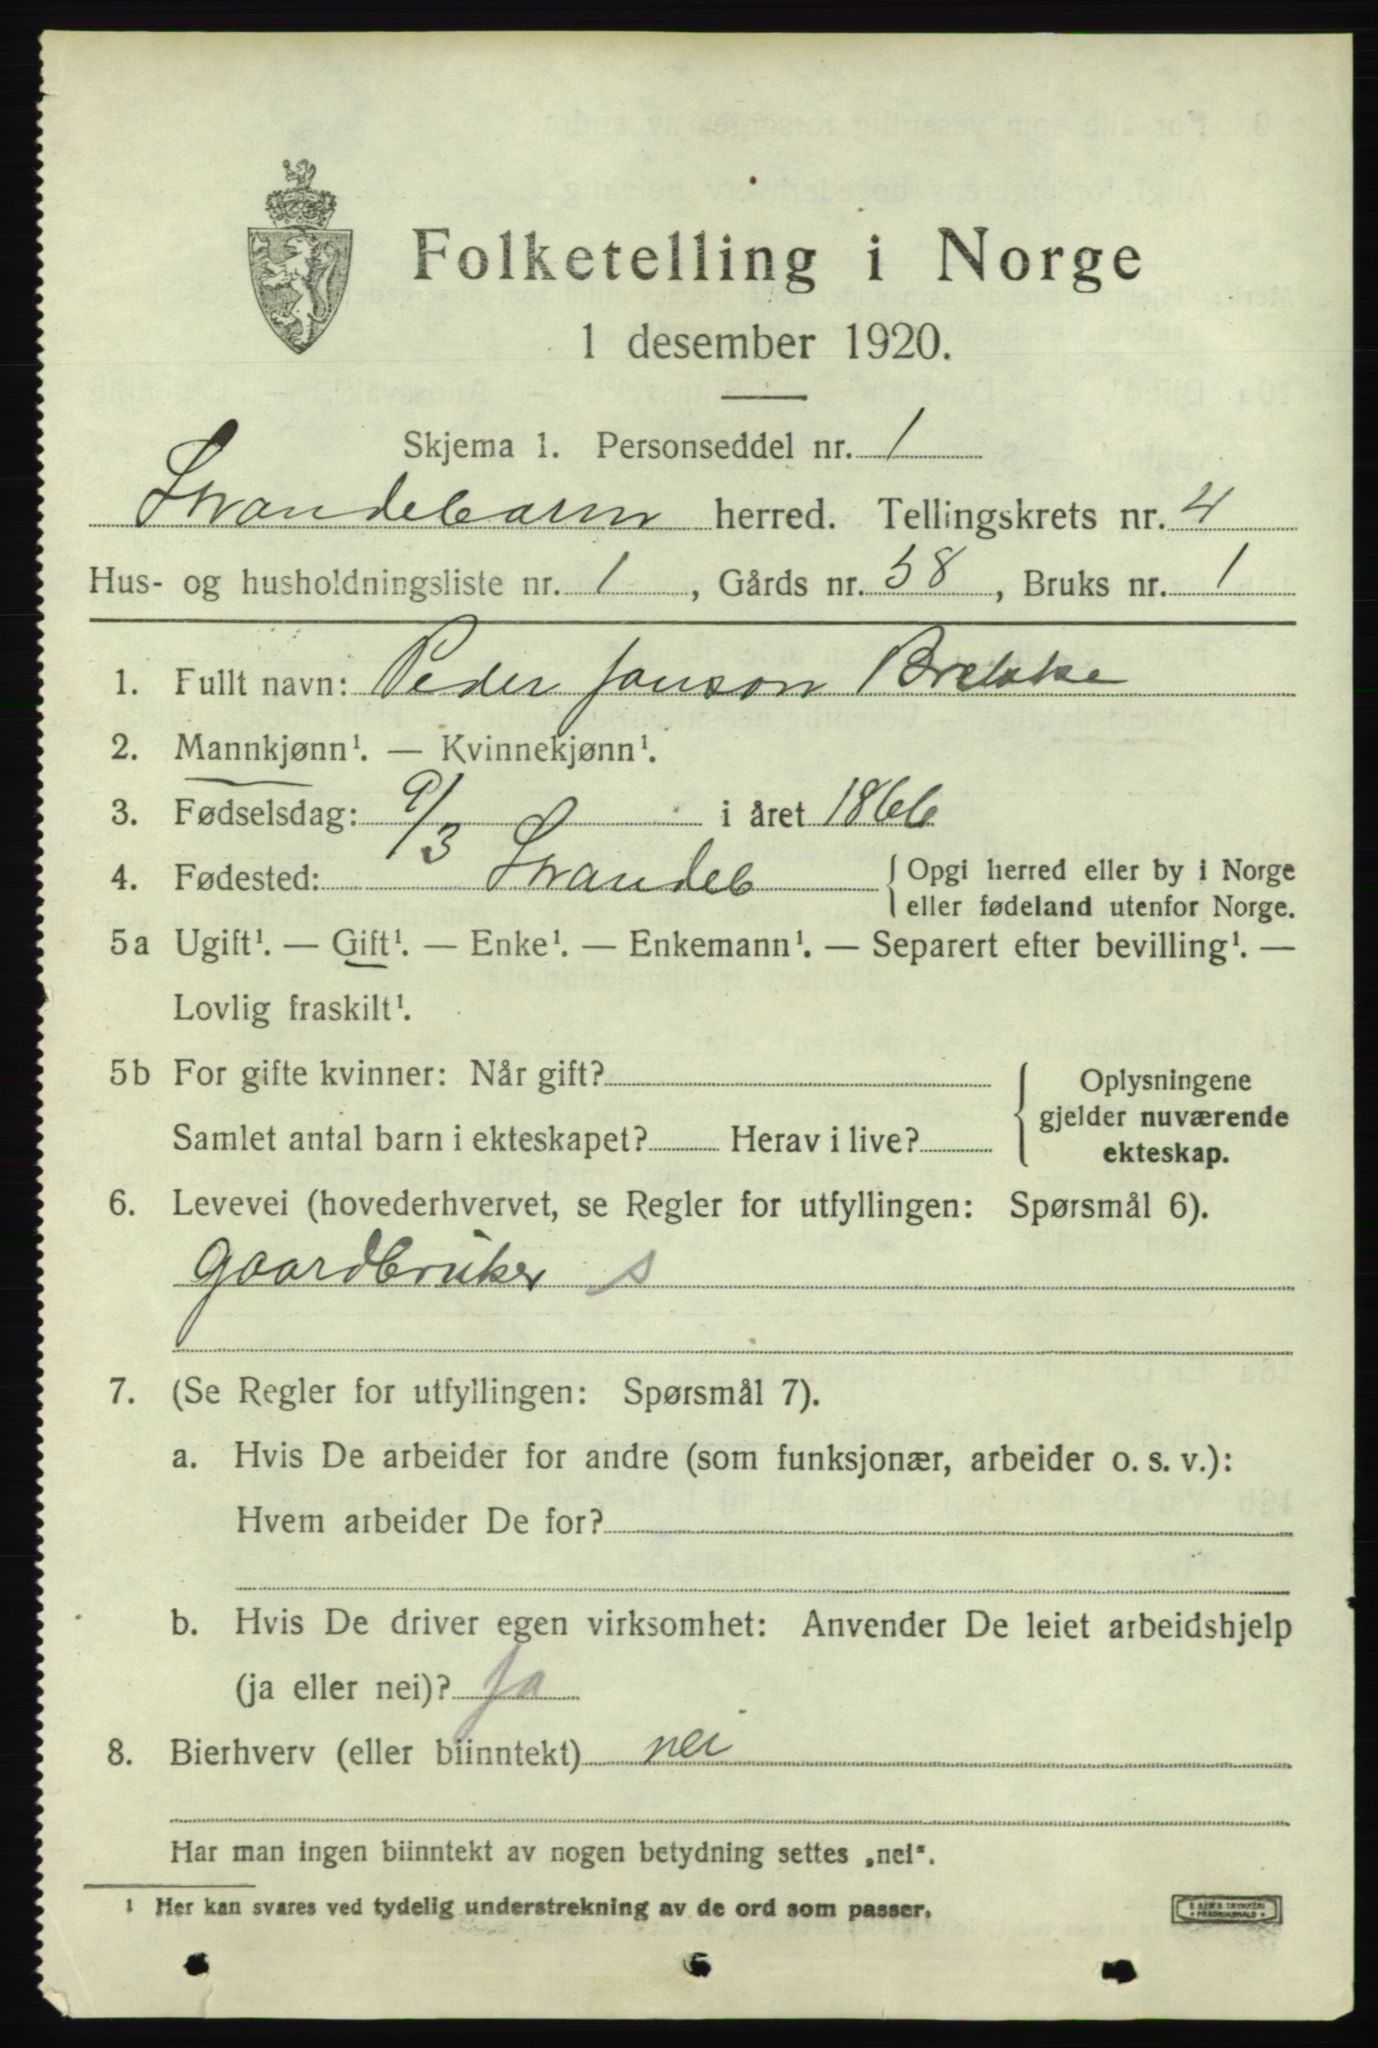 Folketelling i Norge
1 desember 1920.
Skjema 1. Personseddel nr. 1
Strandebarm herred. Tellingskrets nr. 4
Hus- og husholdningsliste nr. 1, Gårds nr. 58, Bruks nr. 1
1. Fullt navn: Peder Janson Brekke
2. Mannkjønn¹. — Kvinnekjønn¹.
3. Fødselsdag: 9/3 i året 1866
4. Fødested: Strandeb { Opgi herred eller by i Norge
eller fødeland utenfor Norge.
5a Ugift¹. — Gift¹. — Enke¹. — Enkemann¹. — Separert efter bevilling¹. —
Lovlig fraskilt¹.
5b For gifte kvinner: Når gift?
Samlet antal barn i ekteskapet? Herav i live?
{ Oplysningene
gjelder nuværende
ekteskap.
6. Levevei (hovederhvervet, se Regler for utfyllingen: Spørsmål 6).
Gaardbruker s
7. (Se Regler for utfyllingen: Spørsmål 7).
a. Hvis De arbeider for andre (som funksjonær, arbeider o. s. v.):
Hvem arbeider De for?
b. Hvis De driver egen virksomhet: Anvender De leiet arbeidshjelp
(ja eller nei)? Ja
8. Bierhverv (eller biinntekt) nei
Har man ingen biinntekt av nogen betydning settes „nei“.
¹ Her kan svares ved tydelig understrekning av de ord som passer.